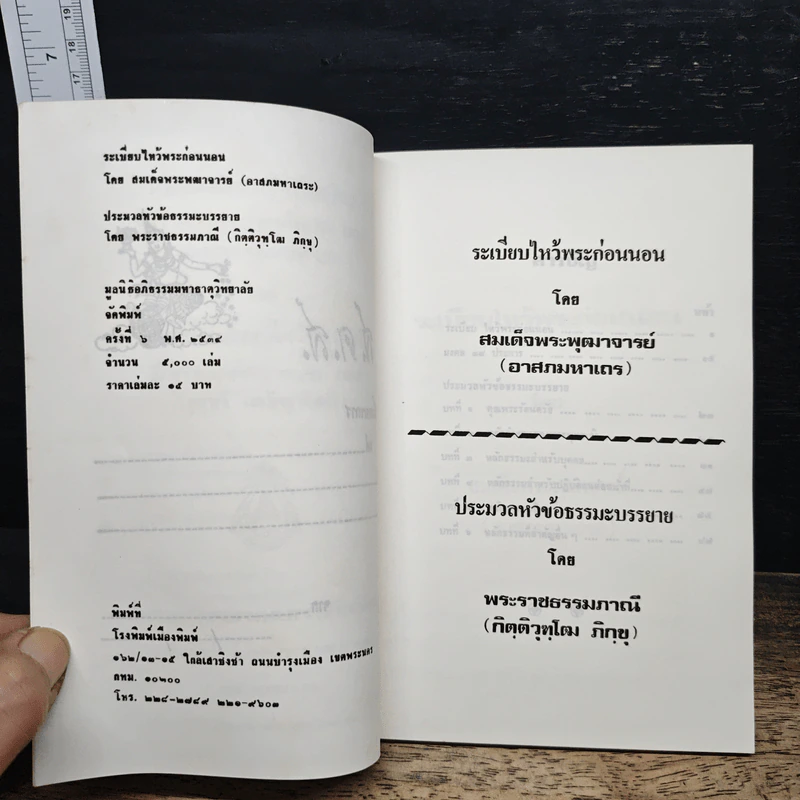 7
19
18
17
ระเบียบไหว้พระก่อนนอน
โดย สมเด็จพระพุฒาจารย์ (อาสภมหาเถระ)
ประมวลหัวข้อธรรมะบรรยาย
โดย พระราชธรรมภาณี (กิตฺติวุฑฺโฒ ภิกฺขุ)
มูลนิธิอภิธรรมมหาธาตุวิทยาลัย
จัดพิมพ์
ครั้งที่ ๖ พ.ศ. ๒๕๓๔
จำนวน ๕,๐๐๐ เล่ม
ราคาเล่มละ ๑๕ บาท
พิมพ์ที่
โรงพิมพ์เมืองพิมพ์
๑๖๒/๑๓-๑๕ ใกล้เสาชิงช้า ถนนบำรุงเมือง เขตพระนคร
กทม. ๑๐๒๐๐
โทร. ๒๒๔-๒๗๔๙ ๒๒๑-๙๖๐๓
ระเบียบไหว้พระก่อนนอน
โดย
สมเด็จพระพุฒาจารย์
(อาสภมหาเถร)
ประมวลหัวข้อธรรมะบรรยาย
โดย
พระราชธรรมภาณี
(กิตฺติวุฑฺโฒ ภิกฺขุ)